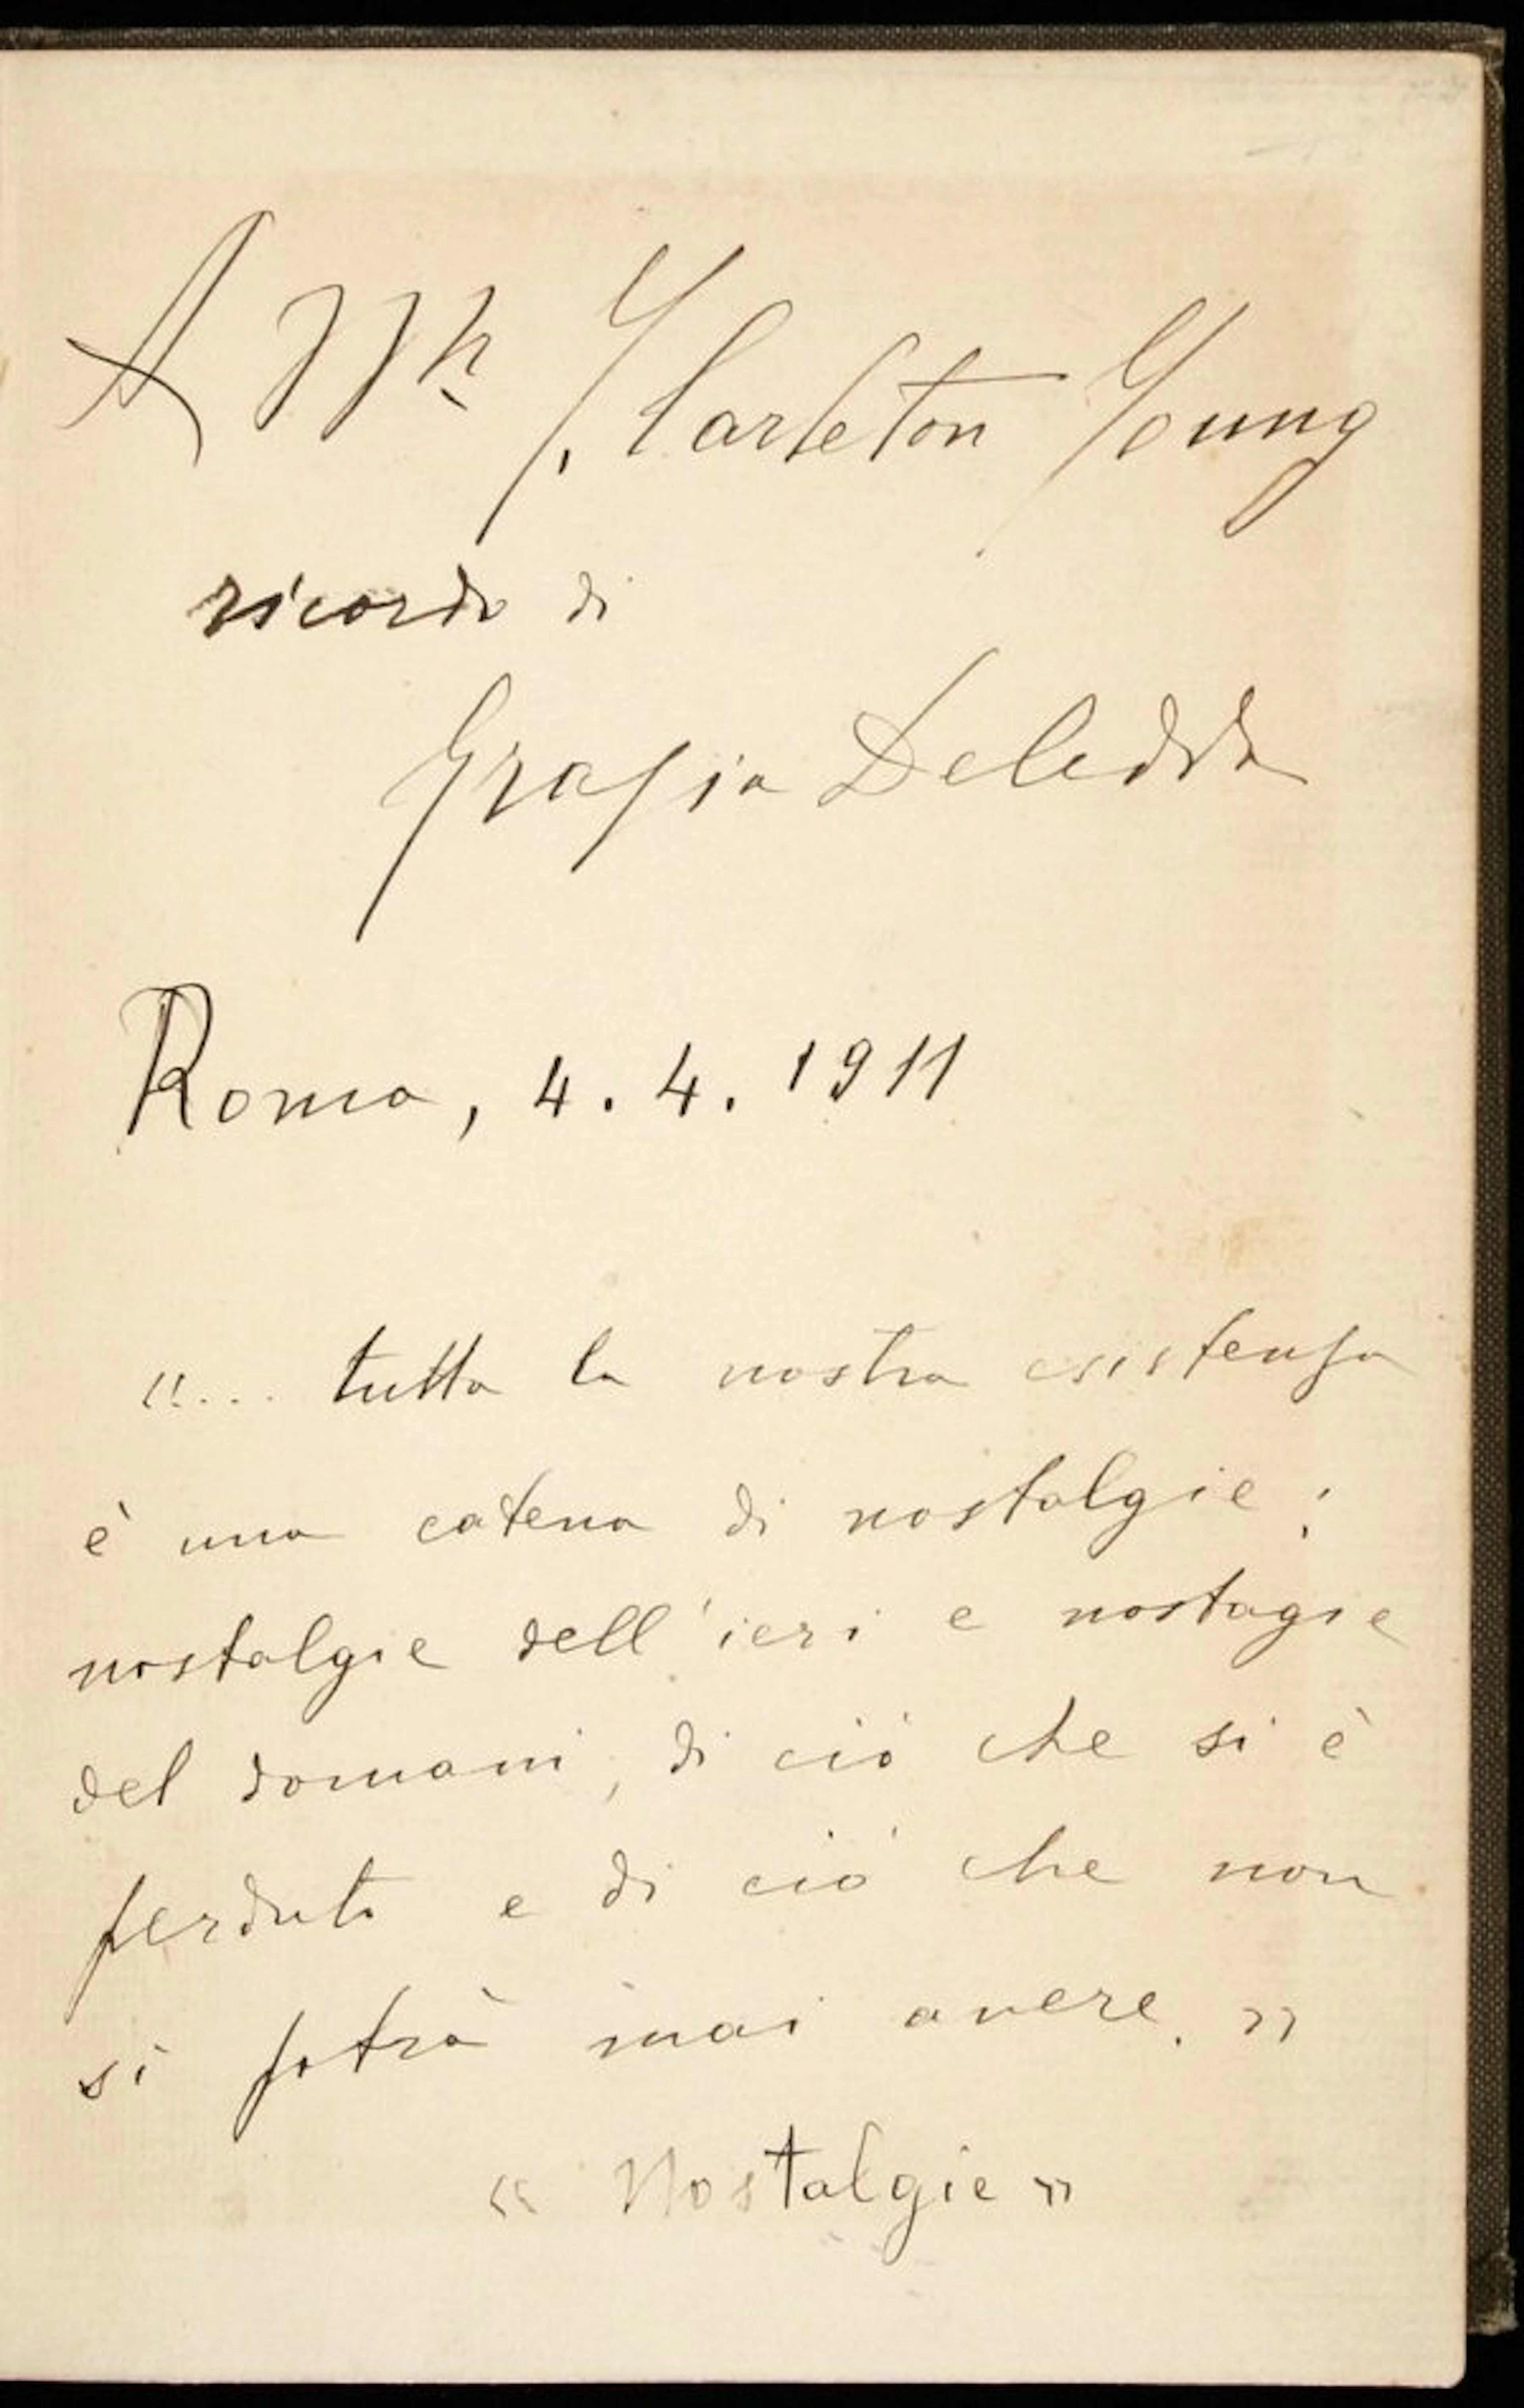 A Mr. J. Carleton Young
ricordo di
Grazia Deledda
Roma, 4. 4. 1911
«... tutta la nostra esistenza
è una catena di nostalgie:
nostalgie dell'ieri e nostagie
del domani, di ciò che si è
perduto e di ciò che non
si potrà mai avere.»
«Nostalgie»